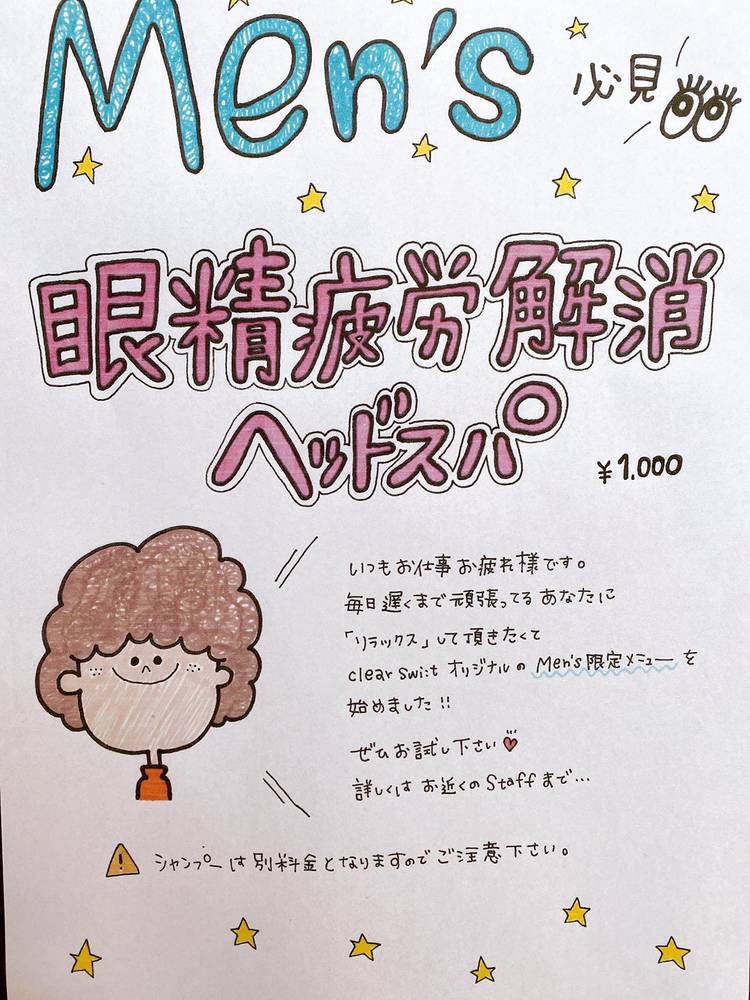 Men's
必見
眼精疲労解消
ヘッドスパ
¥1,000
いつもお仕事お疲れ様です。
毎日遅くまで頑張ってるあなたに
「リラックス」して頂きたくて
clear switオリジナルのMen's限定メニューを
始めました!!
ぜひお試し下さい
詳しくはお近くのStaffまで...
シャンプーは別料金となりますのでご注意下さい。